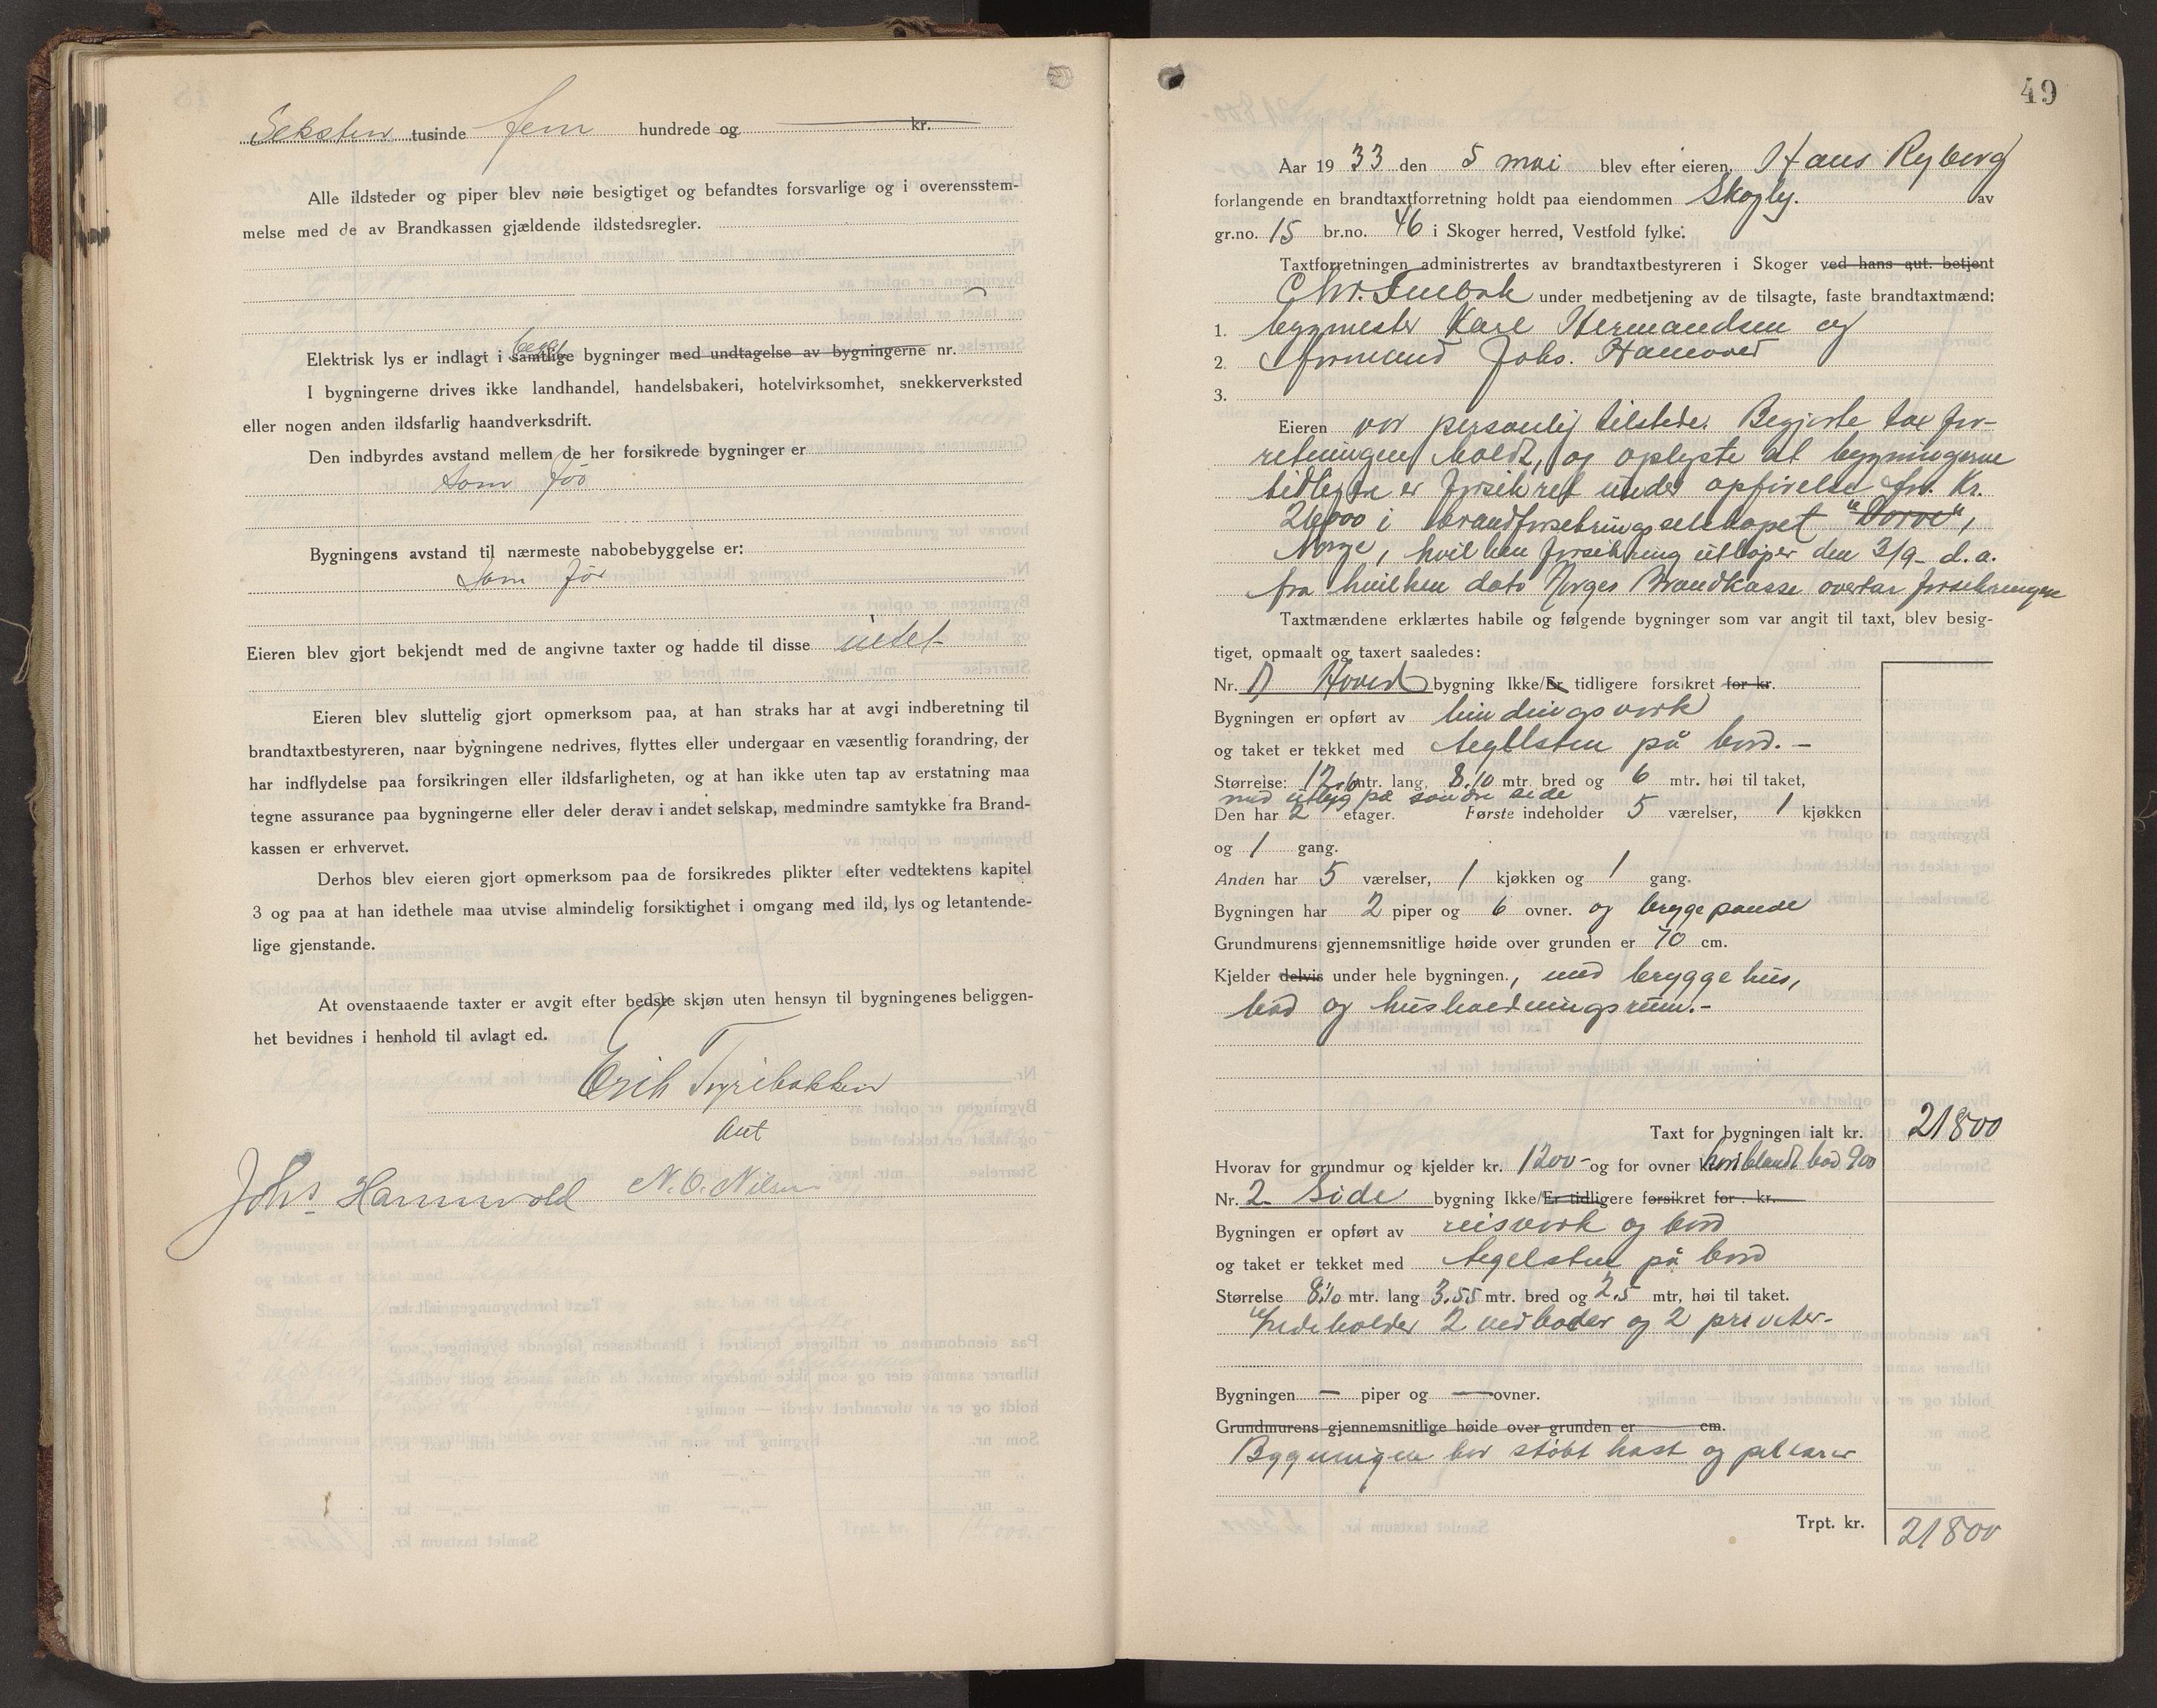 Seksten tusinde fem hundrede og kr.
Alle ildsteder og piper blev nøie besigtiget og befandtes forsvarlige og i overensstem-
melse med de av Brandkassen gjældende ildstedsregler.
Elektrisk lys er indlagt i samtlige begge bygninger med undtagelse av bygningerne nr.
I bygningerne drives ikke landhandel, handelsbakeri, hotelvirksomhet, snekkerverksted
eller nogen anden ildsfarlig haandverksdrift.
Den indbyrdes avstand mellem de her forsikrede bygninger er
som før
Bygningens avstand til nærmeste nabobebyggelse er:
Som før
Eieren blev gjort bekjendt med de angivne taxter og hadde til disse intet
Eieren blev sluttelig gjort opmerksom paa, at han straks har at avgi indberetning til
brandtaxtbestyreren, naar bygningene nedrives, flyttes eller undergaar en væsentlig forandring, der
har indflydelse paa forsikringen eller ildsfarligheten, og at han ikke uten tap av erstatning maa
tegne assurance paa bygningerne eller deler derav i andet selskap, medmindre samtykke fra Brand-
kassen er erhvervet.
Derhos blev eieren gjort opmerksom paa de forsikredes plikter efter vedtektens kapitel
3 og paa at han idethele maa utvise almindelig forsiktighet i omgang med ild, lys og letantende-
lige gjenstande.
At ovenstaaende taxter er avgit efter bedste skjøn uten hensyn til bygningenes beliggen-
het bevidnes i henhold til avlagt ed.
Erik Tyribakken
Aut
Johs. Hannevold N. O. Nilsen
49
Aar 1933 den 5 mai blev efter eieren, Hans Ryberg
forlangende en brandtaxtforretning holdt paa eiendommen Skogly. av
gr.no. 15 br.no. 46 i Skoger herred, Vestfold fylke.
Taxtforretningen administrertes av brandtaxtbestyreren i Skoger ved hans aut. betjent
Chr. under medbetjening av de tilsagte, faste brandtaxtmænd:
1. bygmester Karl Hermandsen og
2. formand Johs. Hannevold
3.
Eieren var personlig tilstede. Begjærte tax for-
retningen holdt, og oplyste at bygningerne
tidligere er forsikret under opførelse for Kr.
26000 i brandforsikringsselskapet "Norve",
Norge, hvilken forsikring utløper den 3/9- d.a.
fra hvilken dato Norges Brandkasse overtar forsikringen
Taxtmændene erklærtes habile og følgende bygninger som var angit til taxt, blev besig-
tiget, opmaalt og taxert saaledes:
Nr. 1) Hoved bygning Ikke/Er tidligere forsikret for kr.
Bygningen er opført av bindingsverk
og taket er tekket med teglsten på bord. -
Størrelse: 12.6 mtr. lang, 8.10 mtr. bred og 6 mtr. høi til taket,
med utbyg på søndre side
Den har 2 etager. Første indeholder 5 værelser, 1 kjøkken
og 1 gang.
Anden har 5 værelser, 1 kjøkken og 1 gang.
Bygningen har 2 piper og 6 ovner. og bryggepande
Grundmurens gjennemsnitlige høide over grunden er 70 cm.
Kjelder delvis under hele bygningen., med bryggehus,
bod og husholdningsrum.-
Taxt for bygningen ialt kr. 21800
Hvorav for grundmur og kjelder kr. 1200- og for ovner hvoriblandt bad 900
Nr. 2 Side bygning Ikke/Er tidligere forsikret for kr.
Bygningen er opført av reisverk og bord
og taket er tekket med tegelsten på bord
Størrelse 8.10 mtr. lang 3.55 mtr. bred og 2.5 mtr, høi til taket.
Indeholder 2 vedboder og 2 priveter-
Bygningen — piper og — ovner.
Grundmurens gjennemsnitlige høide over grunden er cm.
Bygningen har støbt kast og pilarer
Trpt. kr. 21800